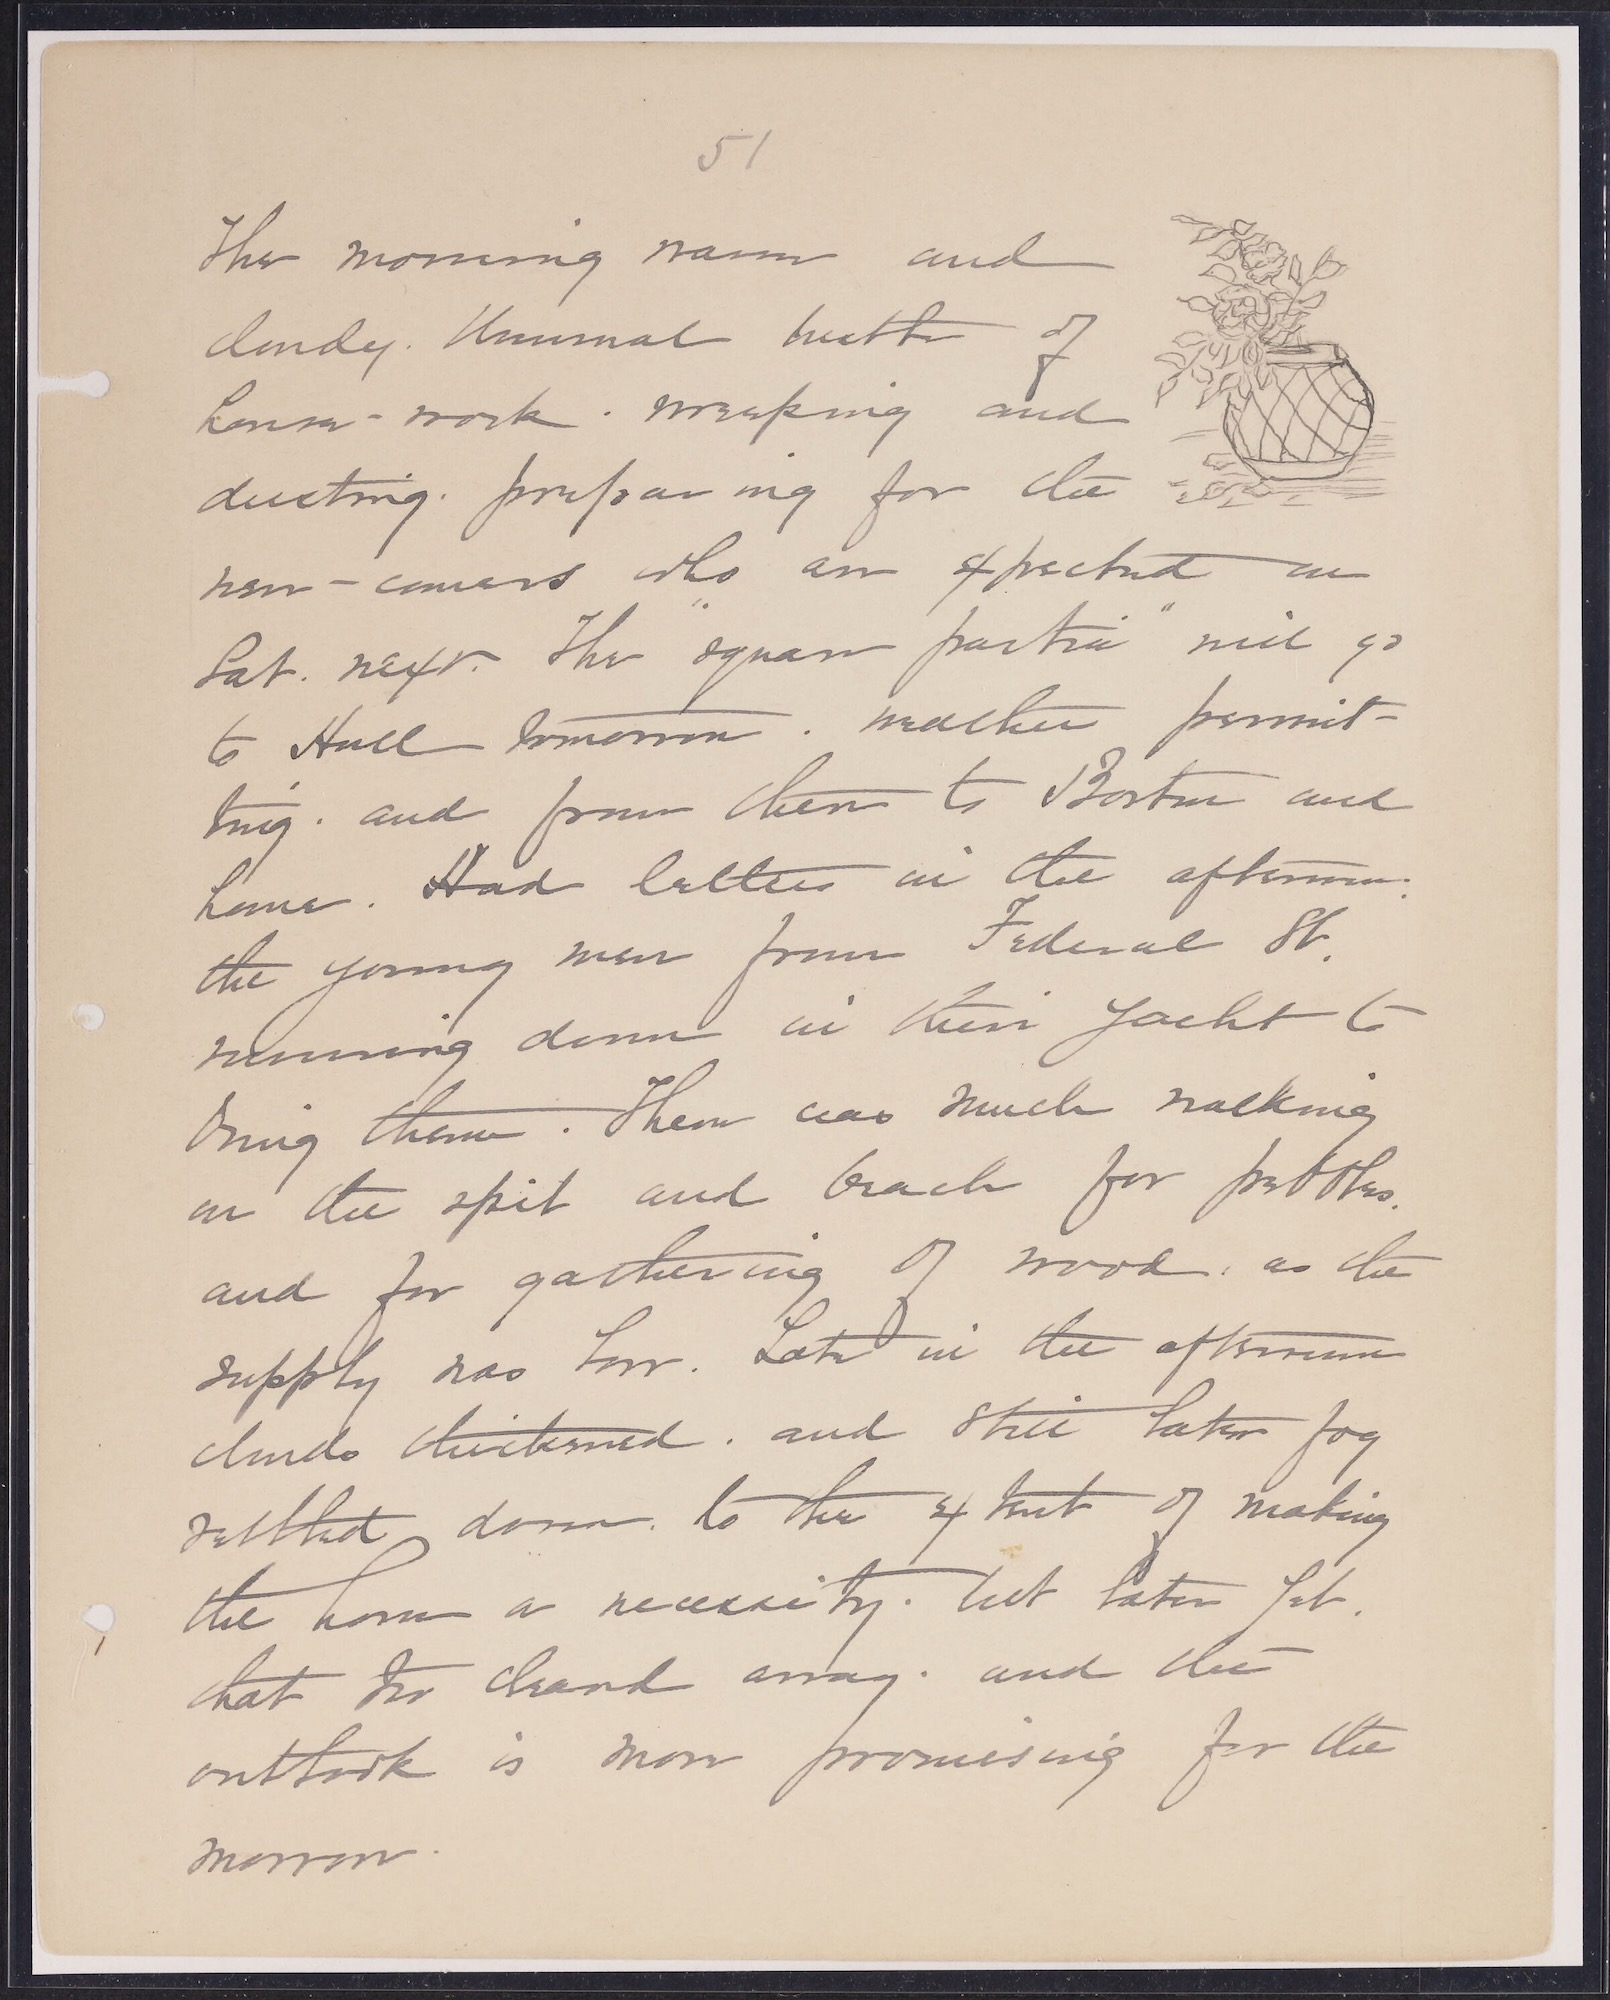 51
The morning warm and
cloudy. Unusual bustle of
house-work. sweeping and
dusting. preparing for the
new-comers who are expected on
Sat. next. The "square partie" will go
to Hull tomorrow. weather permit-
ting. and from there to Boston and
home. Had letters in the afternoon.
the young men from Federal St.
running down in their yacht to
bring them. There was much walking
on the spit and beach for pebbles.
and for gathering of wood. as the
supply was low. Late in the afternoon
clouds thickened. and still later fog
settled down. to the extent of making
the horn a necessity. but later yet.
that too cleared away. and the
outlook is more promising for the
morrow.